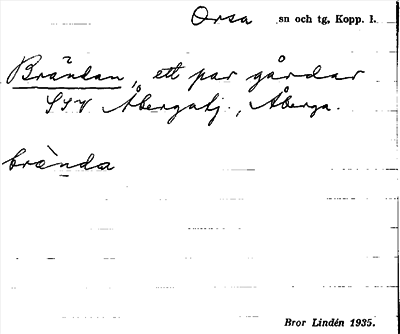 Orsa sn och tg, Kopp. l.
Brändan, ett par gårdar
SSV Åbergatj., Åberga.
brä̀nda
Bror Lindén 1935.